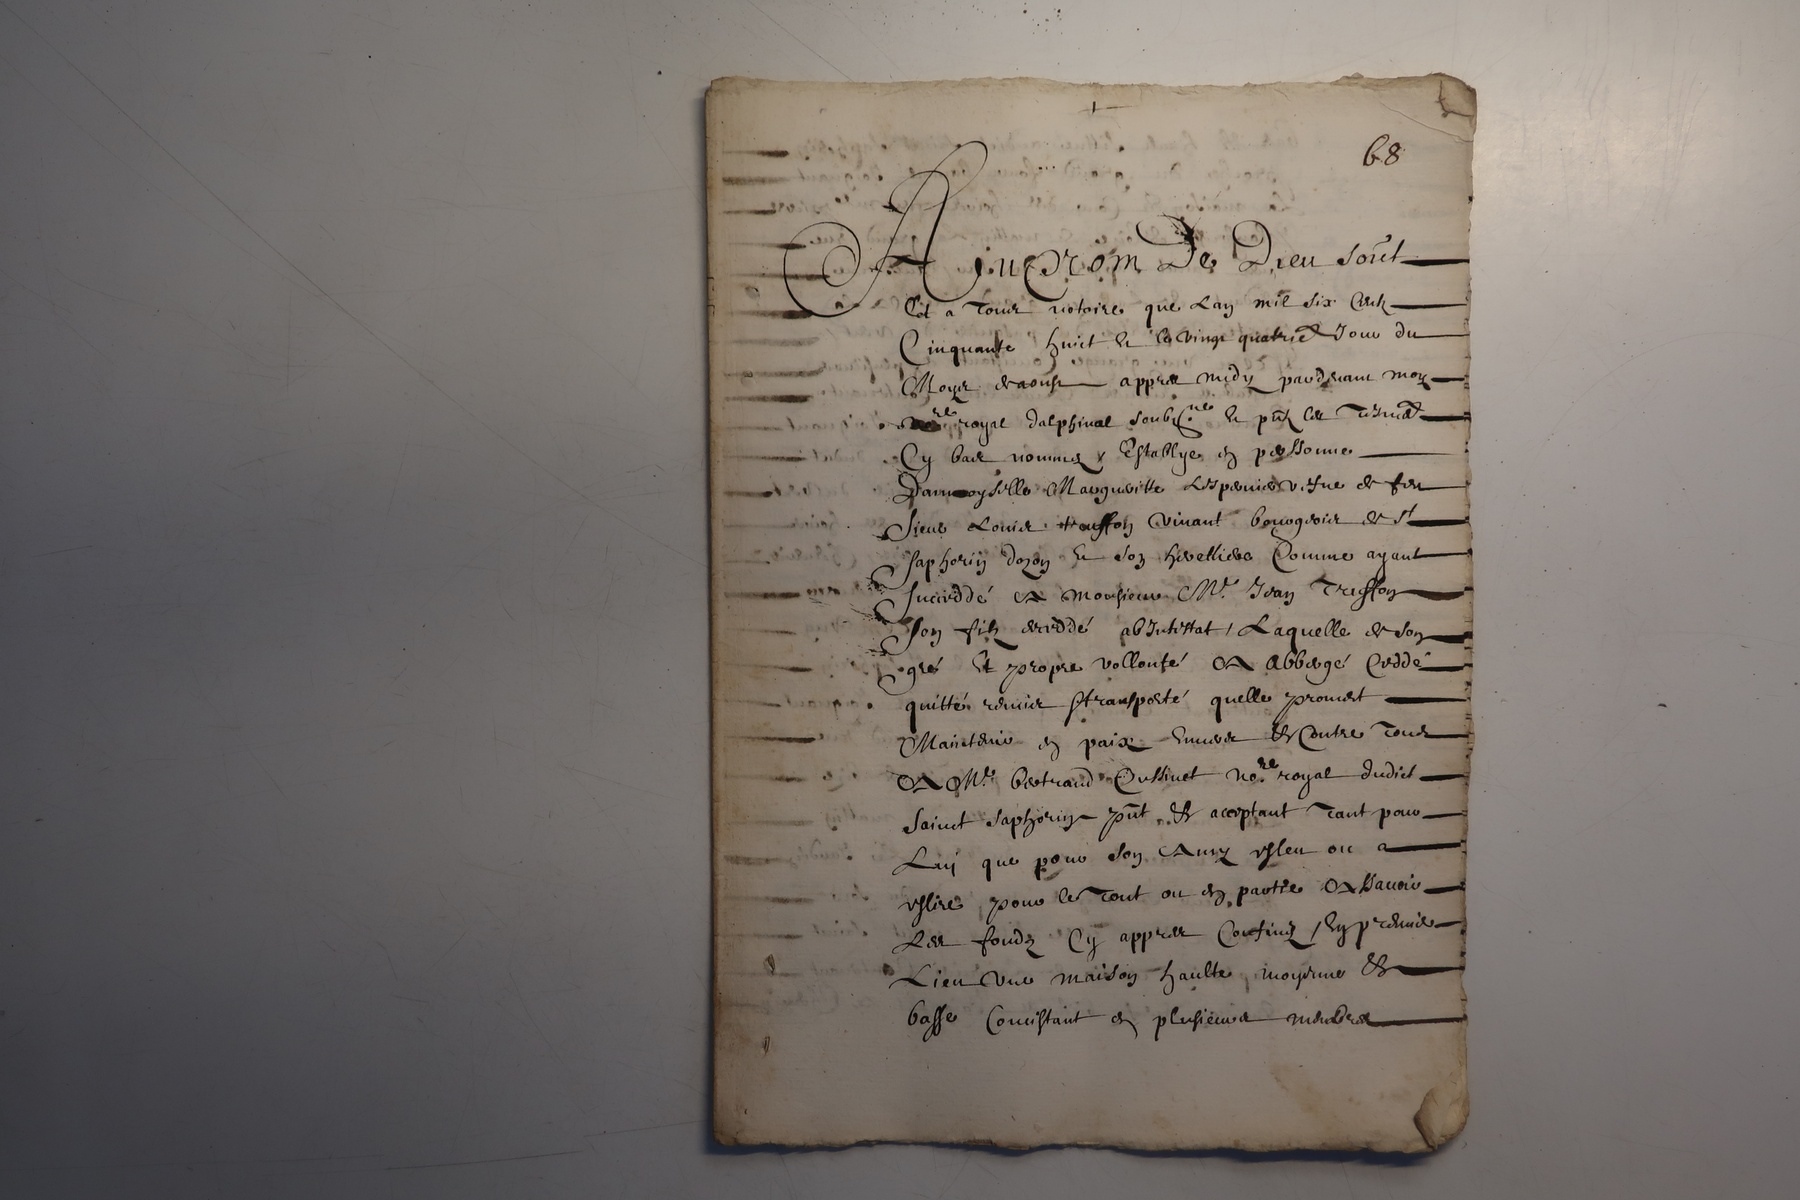 68
Au Nom De Dieu soict
Et a Tous notoire que Lan mil six Centz
Cinquante huict et le vingt quatrie Jour du
Moys daoust appres midy pardevant moy
no.re royal dalphinal soubz.ne et pñtz les Tesmoe
Cy bas nommez Establye en personne
Damoyselle Margueritte vefve de feu
Sieur Louis vivant bourgeois de St
Saphorin dozon et son herettiere Comme ayant
succeddé A Monsieur Mr. Jean
son filz deceddé abJntestat / Laquelle de son
gré Et propre vollonté A Abbergé Ceddé
quitté remis & transporté quelle promet
Maintenir en paix Envers & Contre Tous
A Mre bertrand no.re royal dudict
Sainct Saphorin pñt & acceptant Tant pour
Luy que pour son Amy esleu ou a
eslire pour le Tout ou en partie A scavoir
Les fondz Cy appres Confinez / En premier
Lieu Une maison haulte moyenne &
basse Concistant en plusieurs membres